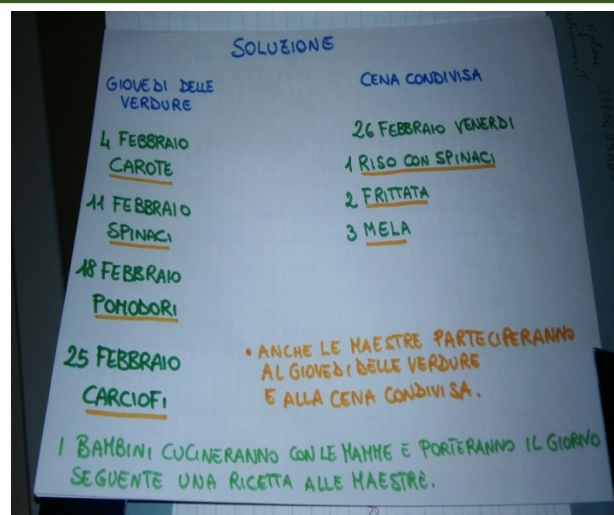 SOLUZIONE
GIOVEDI DELLE
VERDURE
4 FEBBRAIO
CAROTE
11 FEBBRAIO
SPINACI
18 FEBBRAIO
POMODORI
25 FEBBRAIO
CARCIOFI
CENA CONDIVISA
26 FEBBRAIO VENERDI
1 RISO CON SPINACI
2 FRITTATA
3 MELA
• ANCHE LE MAESTRE PARTECIPERANNO
AL GIOVEDI DELLE VERDURE
E ALLA CENA CONDIVISA.
I BAMBINI CUCINERANNO CON LE MAMME E PORTERANNO IL GIORNO
SEGUENTE UNA RICETTA ALLE MAESTRE.